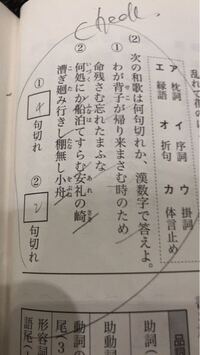 Check
乱れて
ア 枕詞 イ 序詞 ウ 掛詞
エ 縁語 オ 折句 カ 体言止め
(2) 次の和歌は何句切れか、漢数字で答えよ。
① わが背子が帰り来まさむ時のため
命残さむ忘れたまふな
② 何処にか船泊てすらむ安礼の崎
漕ぎ廻み行きし棚無し小舟
① 句切れ ② 句切れ
品詞
助詞
助動詞
動詞の
尾(3
形容詞
語尾